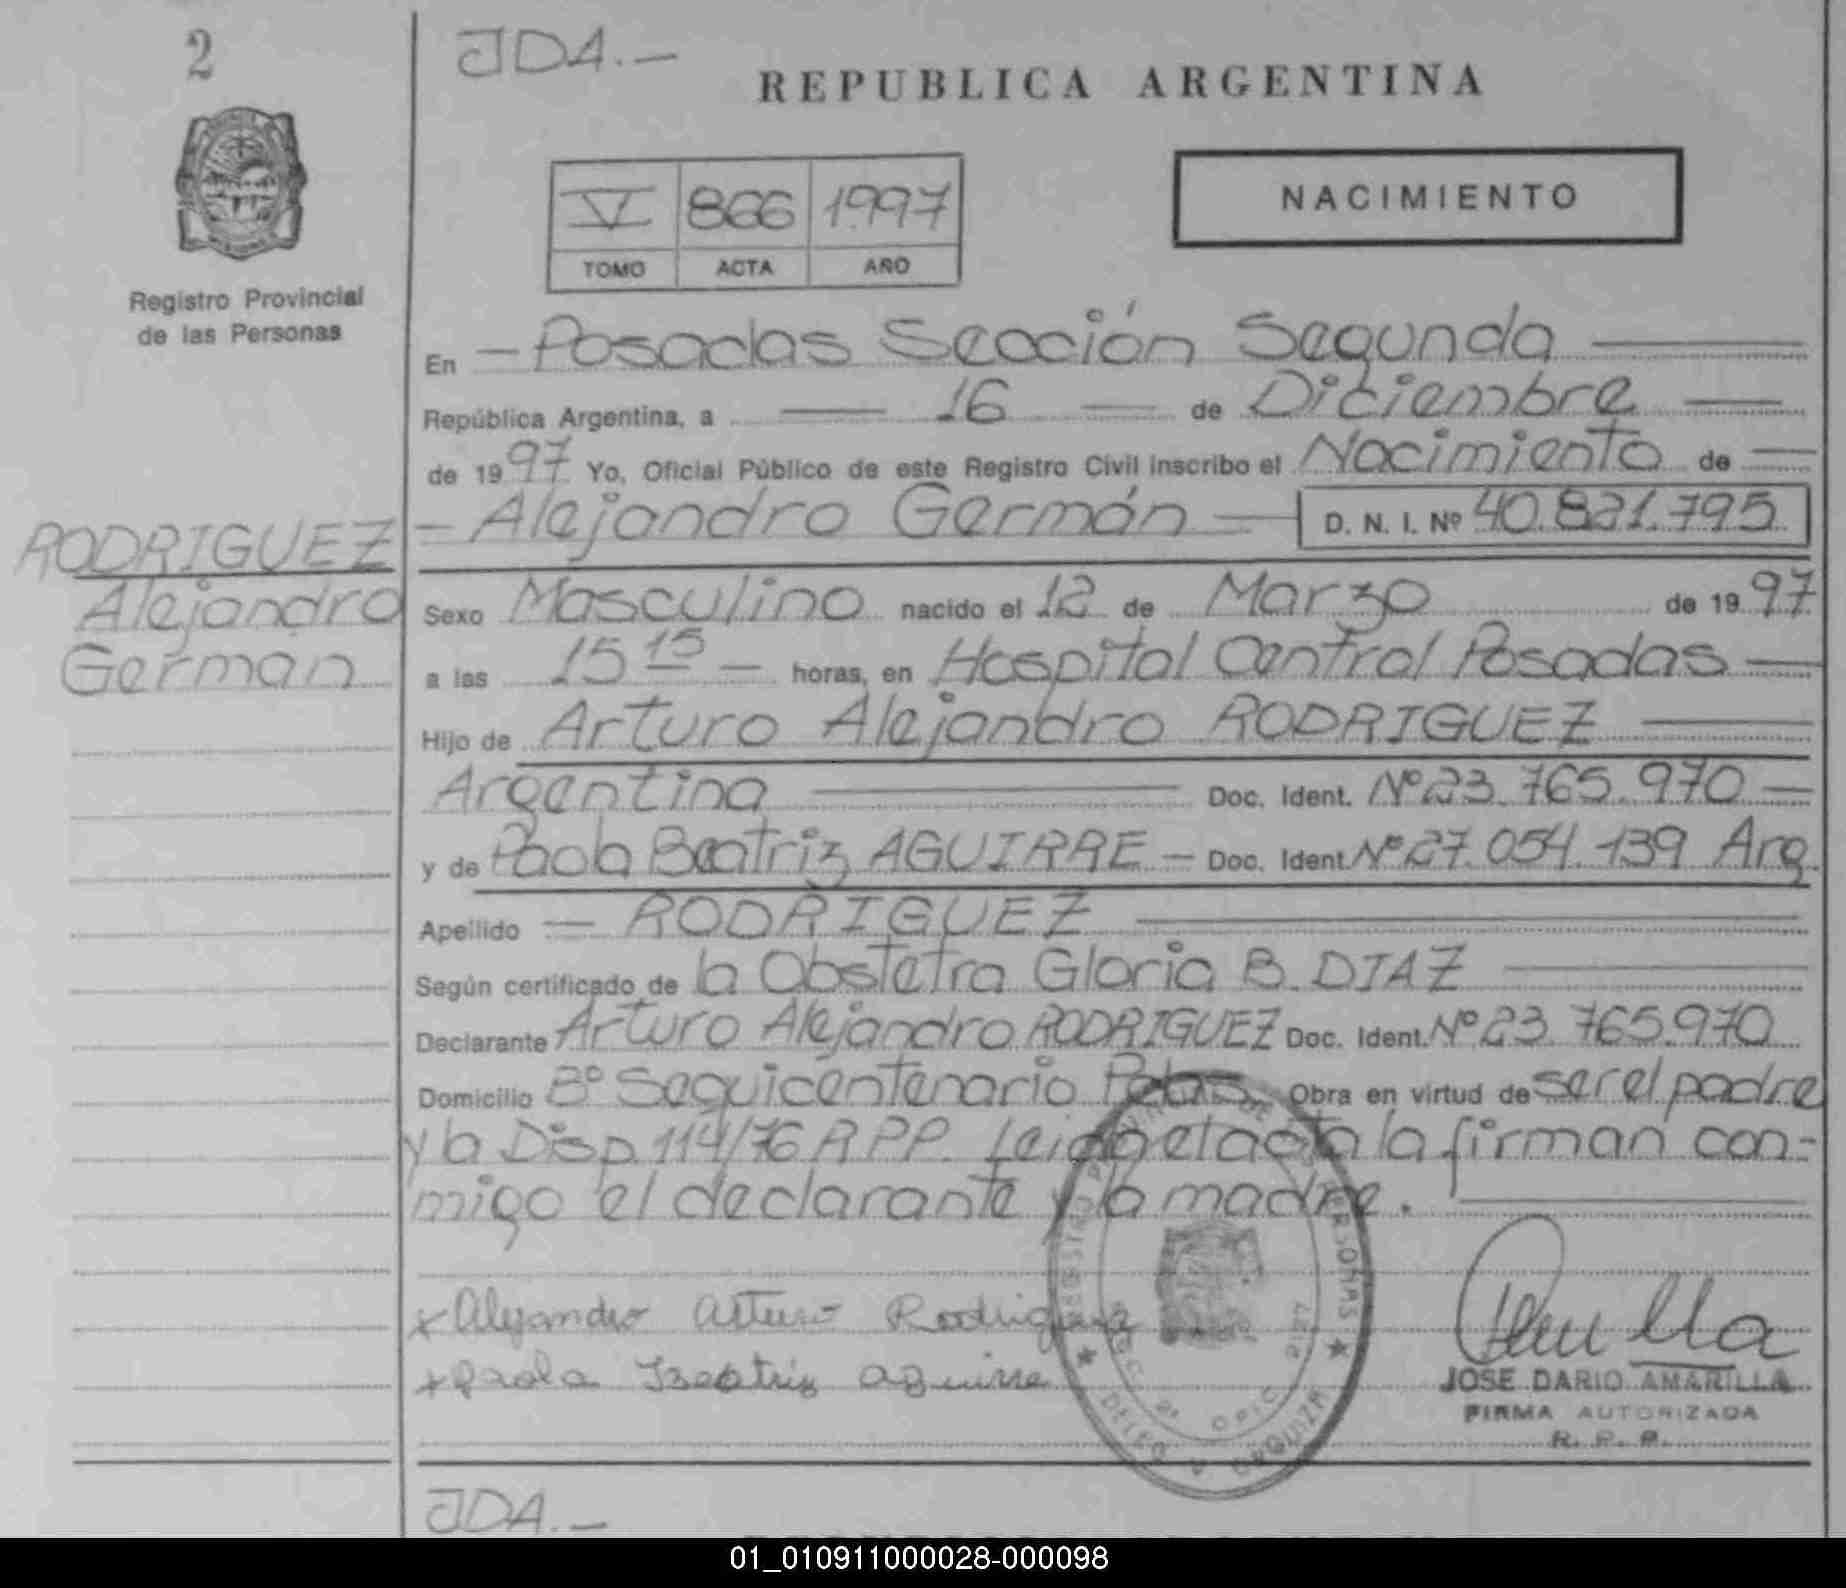 2
JDA.-
REPUBLICA ARGENTINA
NACIMIENTO
V 866 1997
TOMO ACTA AÑO
Registro Provincial
de las Personas
En - Posadas Sección Segunda
República Argentina, a 16 de Diciembre
de 1997 Yo, Oficial Público de este Registro Civil inscribo el Nacimiento de
- Alejandro Germán - D. N. I. Nº 40.821.795
RODRIGUEZ
Alejandro
Germán
Sexo Masculino nacido el 12 de Marzo de 1997
a las 15 15 - horas, en Hospital Central Posadas -
Hijo de Arturo Alejandro RODRIGUEZ
Argentina Doc. Ident. Nº 23.765.970 -
y de Paola Beatriz AGUIRRE - Doc. Ident. Nº 27.054.139 Arg.
Apellido - RODRIGUEZ
Según certificado de la Obstetra Gloria B. DIAZ
Declarante Arturo Alejandro RODRIGUEZ Doc. Ident. Nº 23.765.970
Domicilio Bº Sequicentenario Pdas. Obra en virtud de ser el padre
y la Disp. 114/76 RPP. Leida el acta la firman con-
migo el declarante y la madre.
x Alejandro Arturo Rodriguez
x Paola Beatriz Aguirre
REGISTRO PROVINCIAL DE LAS PERSONAS
JOSE DARIO AMARILLA
FIRMA AUTORIZADA
R. P. P.
JDA.-
01_010911000028-000098